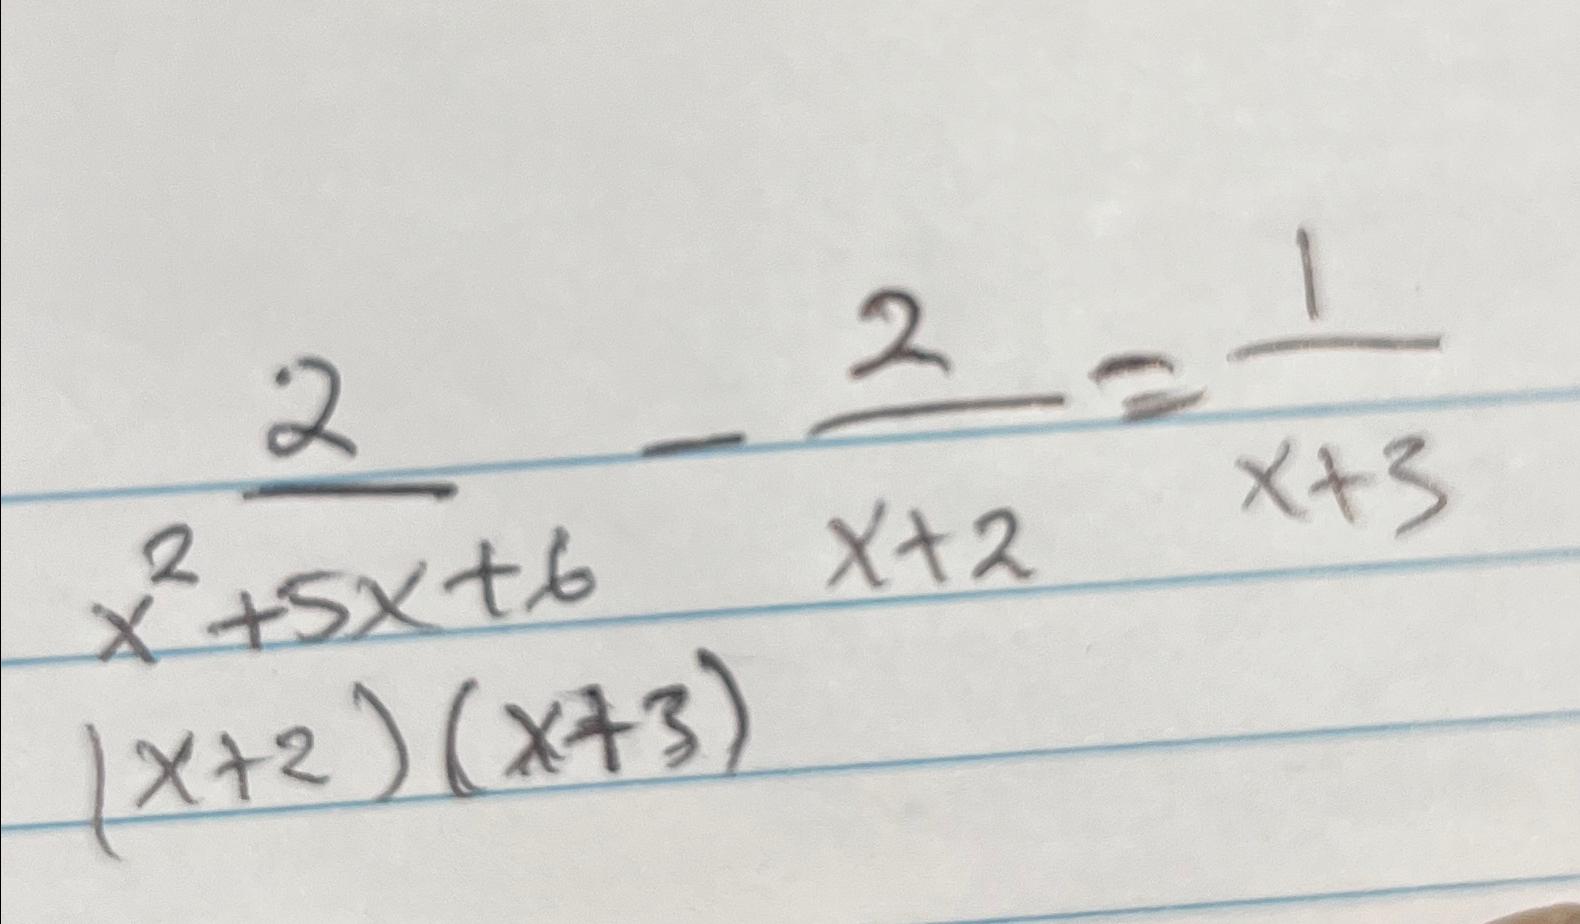 2/(x²+5x+6) - 2/(x+2) = 1/(x+3)
(x+2)(x+3)